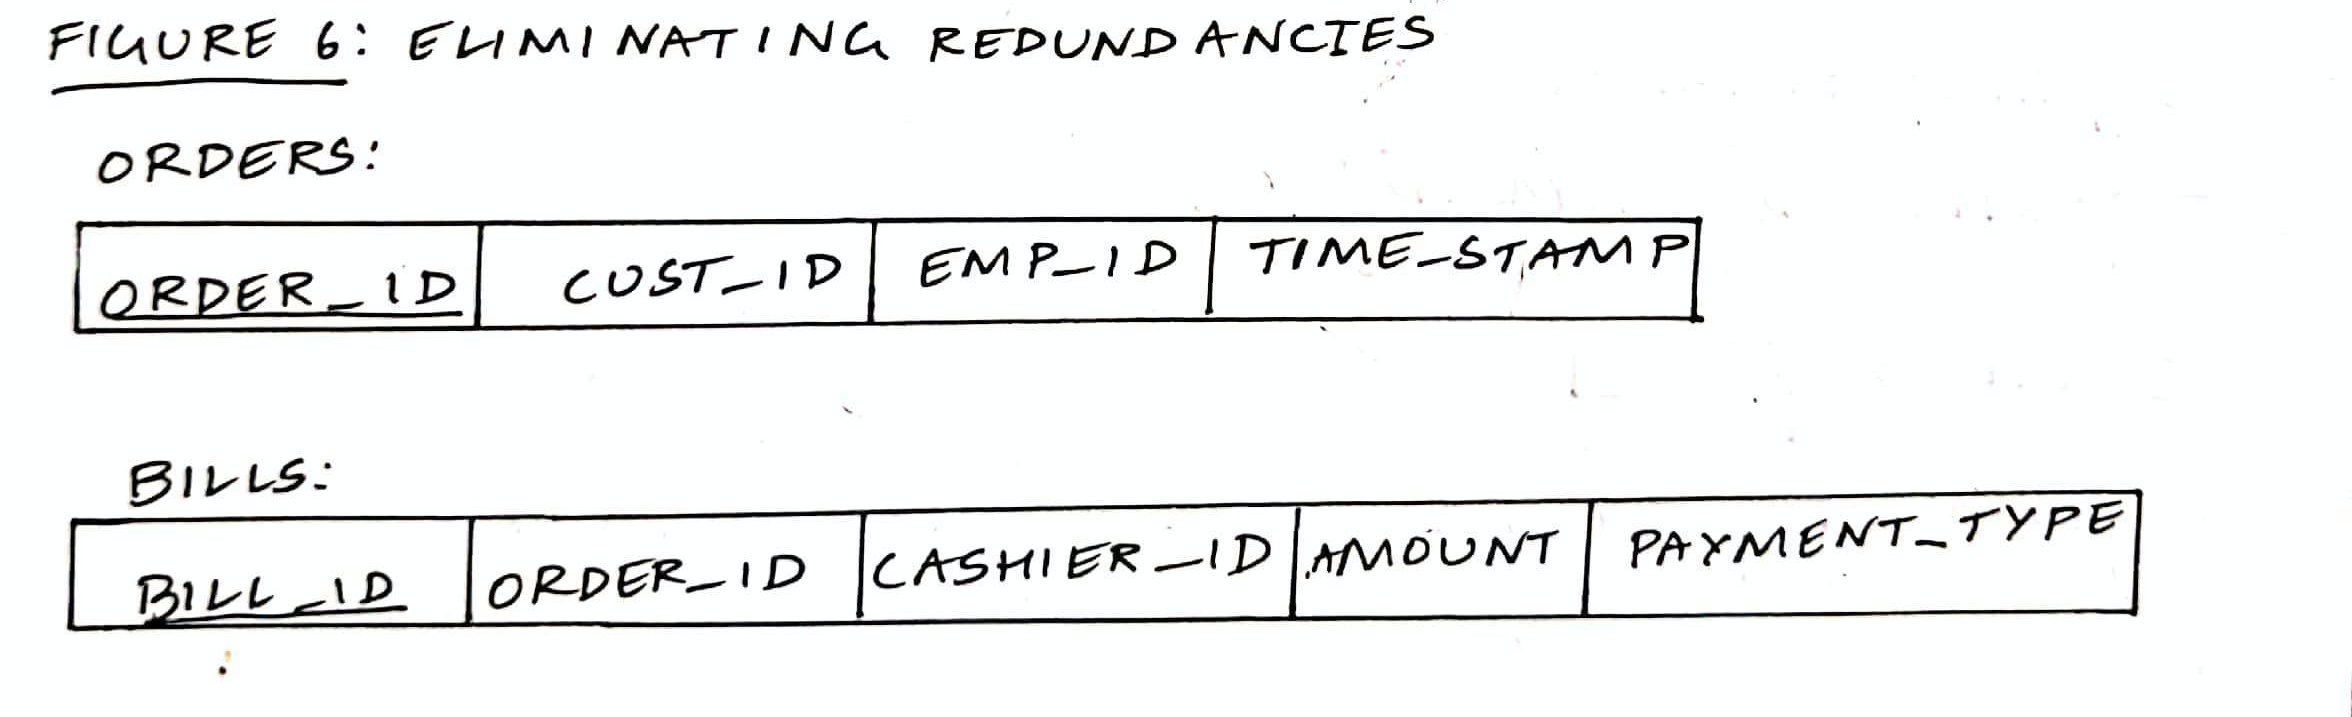 FIGURE 6: ELIMINATING REDUNDANCIES
ORDERS:
ORDER_ID CUST_ID EMP_ID TIME_STAMP
BILLS:
BILL_ID ORDER_ID CASHIER_ID AMOUNT PAYMENT_TYPE